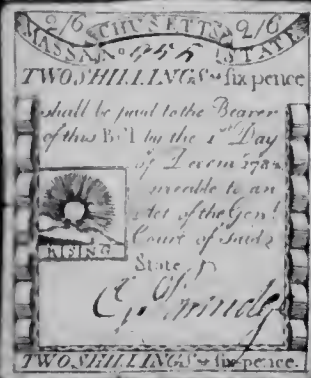 2/6 CHUSETTS 2/6
MASSA STATE
No
TWO SHILLINGS & six pence
shall be paid to the Bearer
of this Bill by the 1st Day
of Decem 178
to an
Act of the Genl
Court of Said
State
RISING
TWO SHILLINGS & six pence.